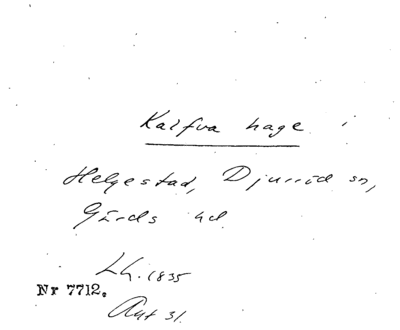 Kalfva hage i
Helgestad, Djurröd sn,
Gärds hd.
Lh. 1835
Nr 7712.
Akt 31.